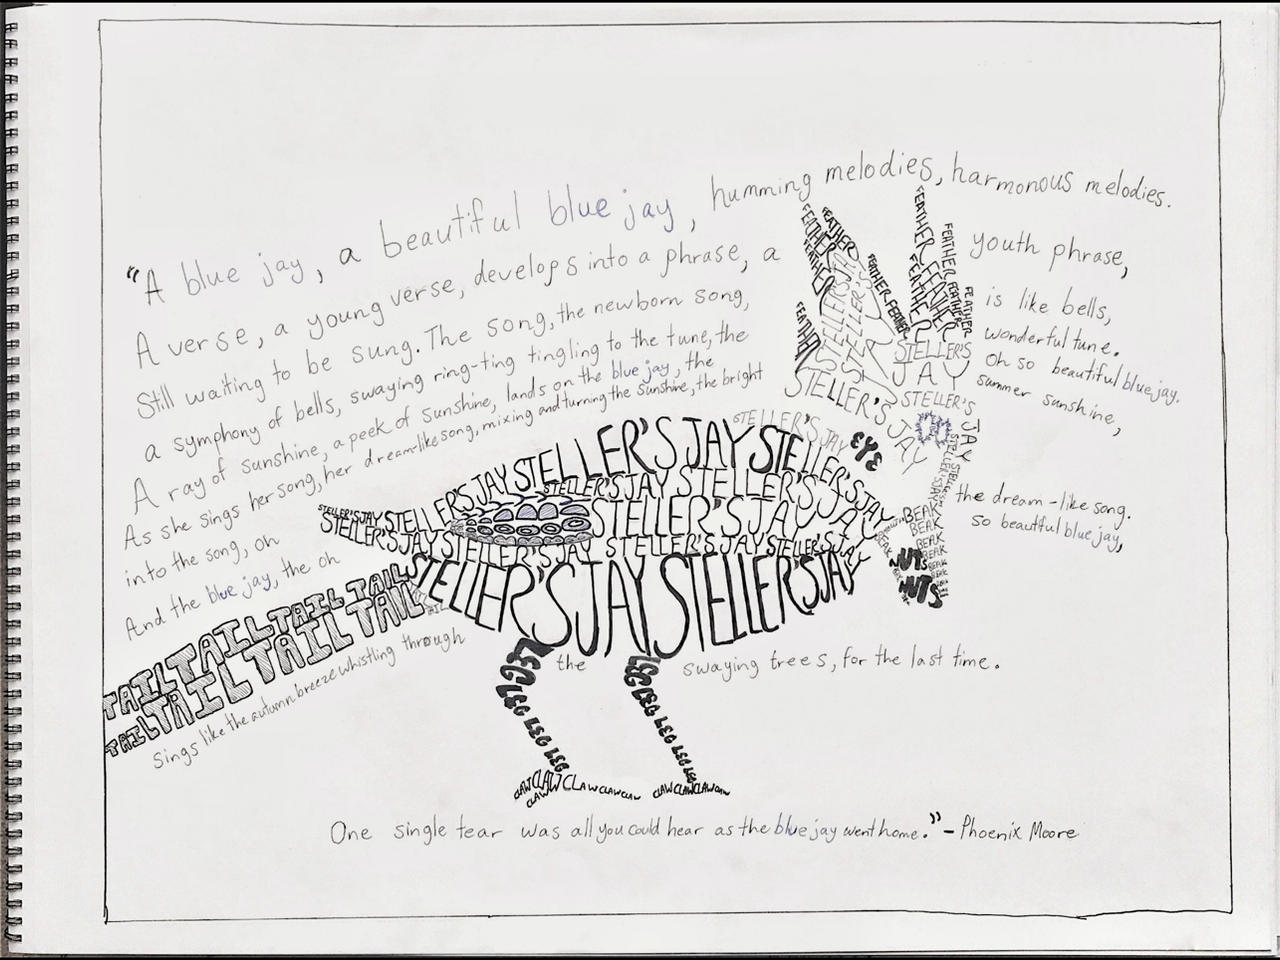 "A blue jay, a beautiful blue jay, humming melodies, harmonous melodies.
A verse, a young verse, develops into a phrase, a youth phrase,
Still waiting to be sung. The song, the newborn song, is like bells,
a symphony of bells, swaying ring-ting tingling to the tune, the wonderful tune.
A ray of sunshine, a peek of sunshine, lands on the blue jay, the Oh so beautiful blue jay.
As she sings her song, her dream-like song, mixing and turning the sunshine, the bright summer sunshine,
into the song, oh the dream-like song.
And the blue jay, the oh so beautful blue jay,
Sings like the autumn breeze whistling through the swaying trees, for the last time.
One single tear was all you could hear as the blue jay went home." - Phoenix Moore
FEATHER FEATHER FEATHER FEATHER
FEATHER FEATHER
FEATHER
FEATHER FEATHER FEATHER FEATHER
FEATHER FEATHER
STELLER'S JAY
STELLER'S JAY
STELLER'S JAY
STELLER'S
JAY
STELLER'S
JAY
EYE
STELLER'S JAY
STELLER'S JAY STELLER'S JAY STELLER'S JAY STELLER'S JAY
STELLER'S JAY STELLER'S JAY
STELLER'S JAY
STELLER'S JAY STELLER'S JAY STELLER'S JAY STELLER'S JAY
STELLER'S JAY STELLER'S JAY
BEAK
BEAK
BEAK
BEAK
NUTS
NUTS
TAIL TAIL TAIL TAIL TAIL
TAIL TAIL TAIL TAIL
LEG LEG LEG LEG
LEG LEG LEG LEG LEG
CLAW CLAW CLAW CLAW CLAW
CLAW
CLAW CLAW CLAW